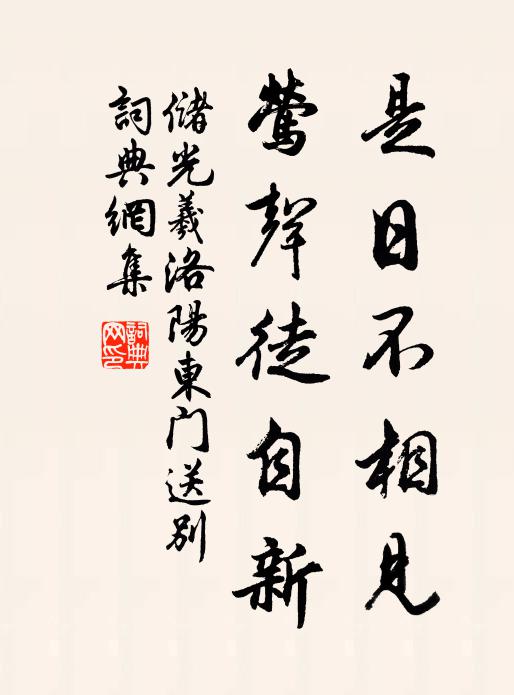 是日不相見
鶯聲徒自新
儲光羲洛陽東門送別
詞典網集
詞典網印